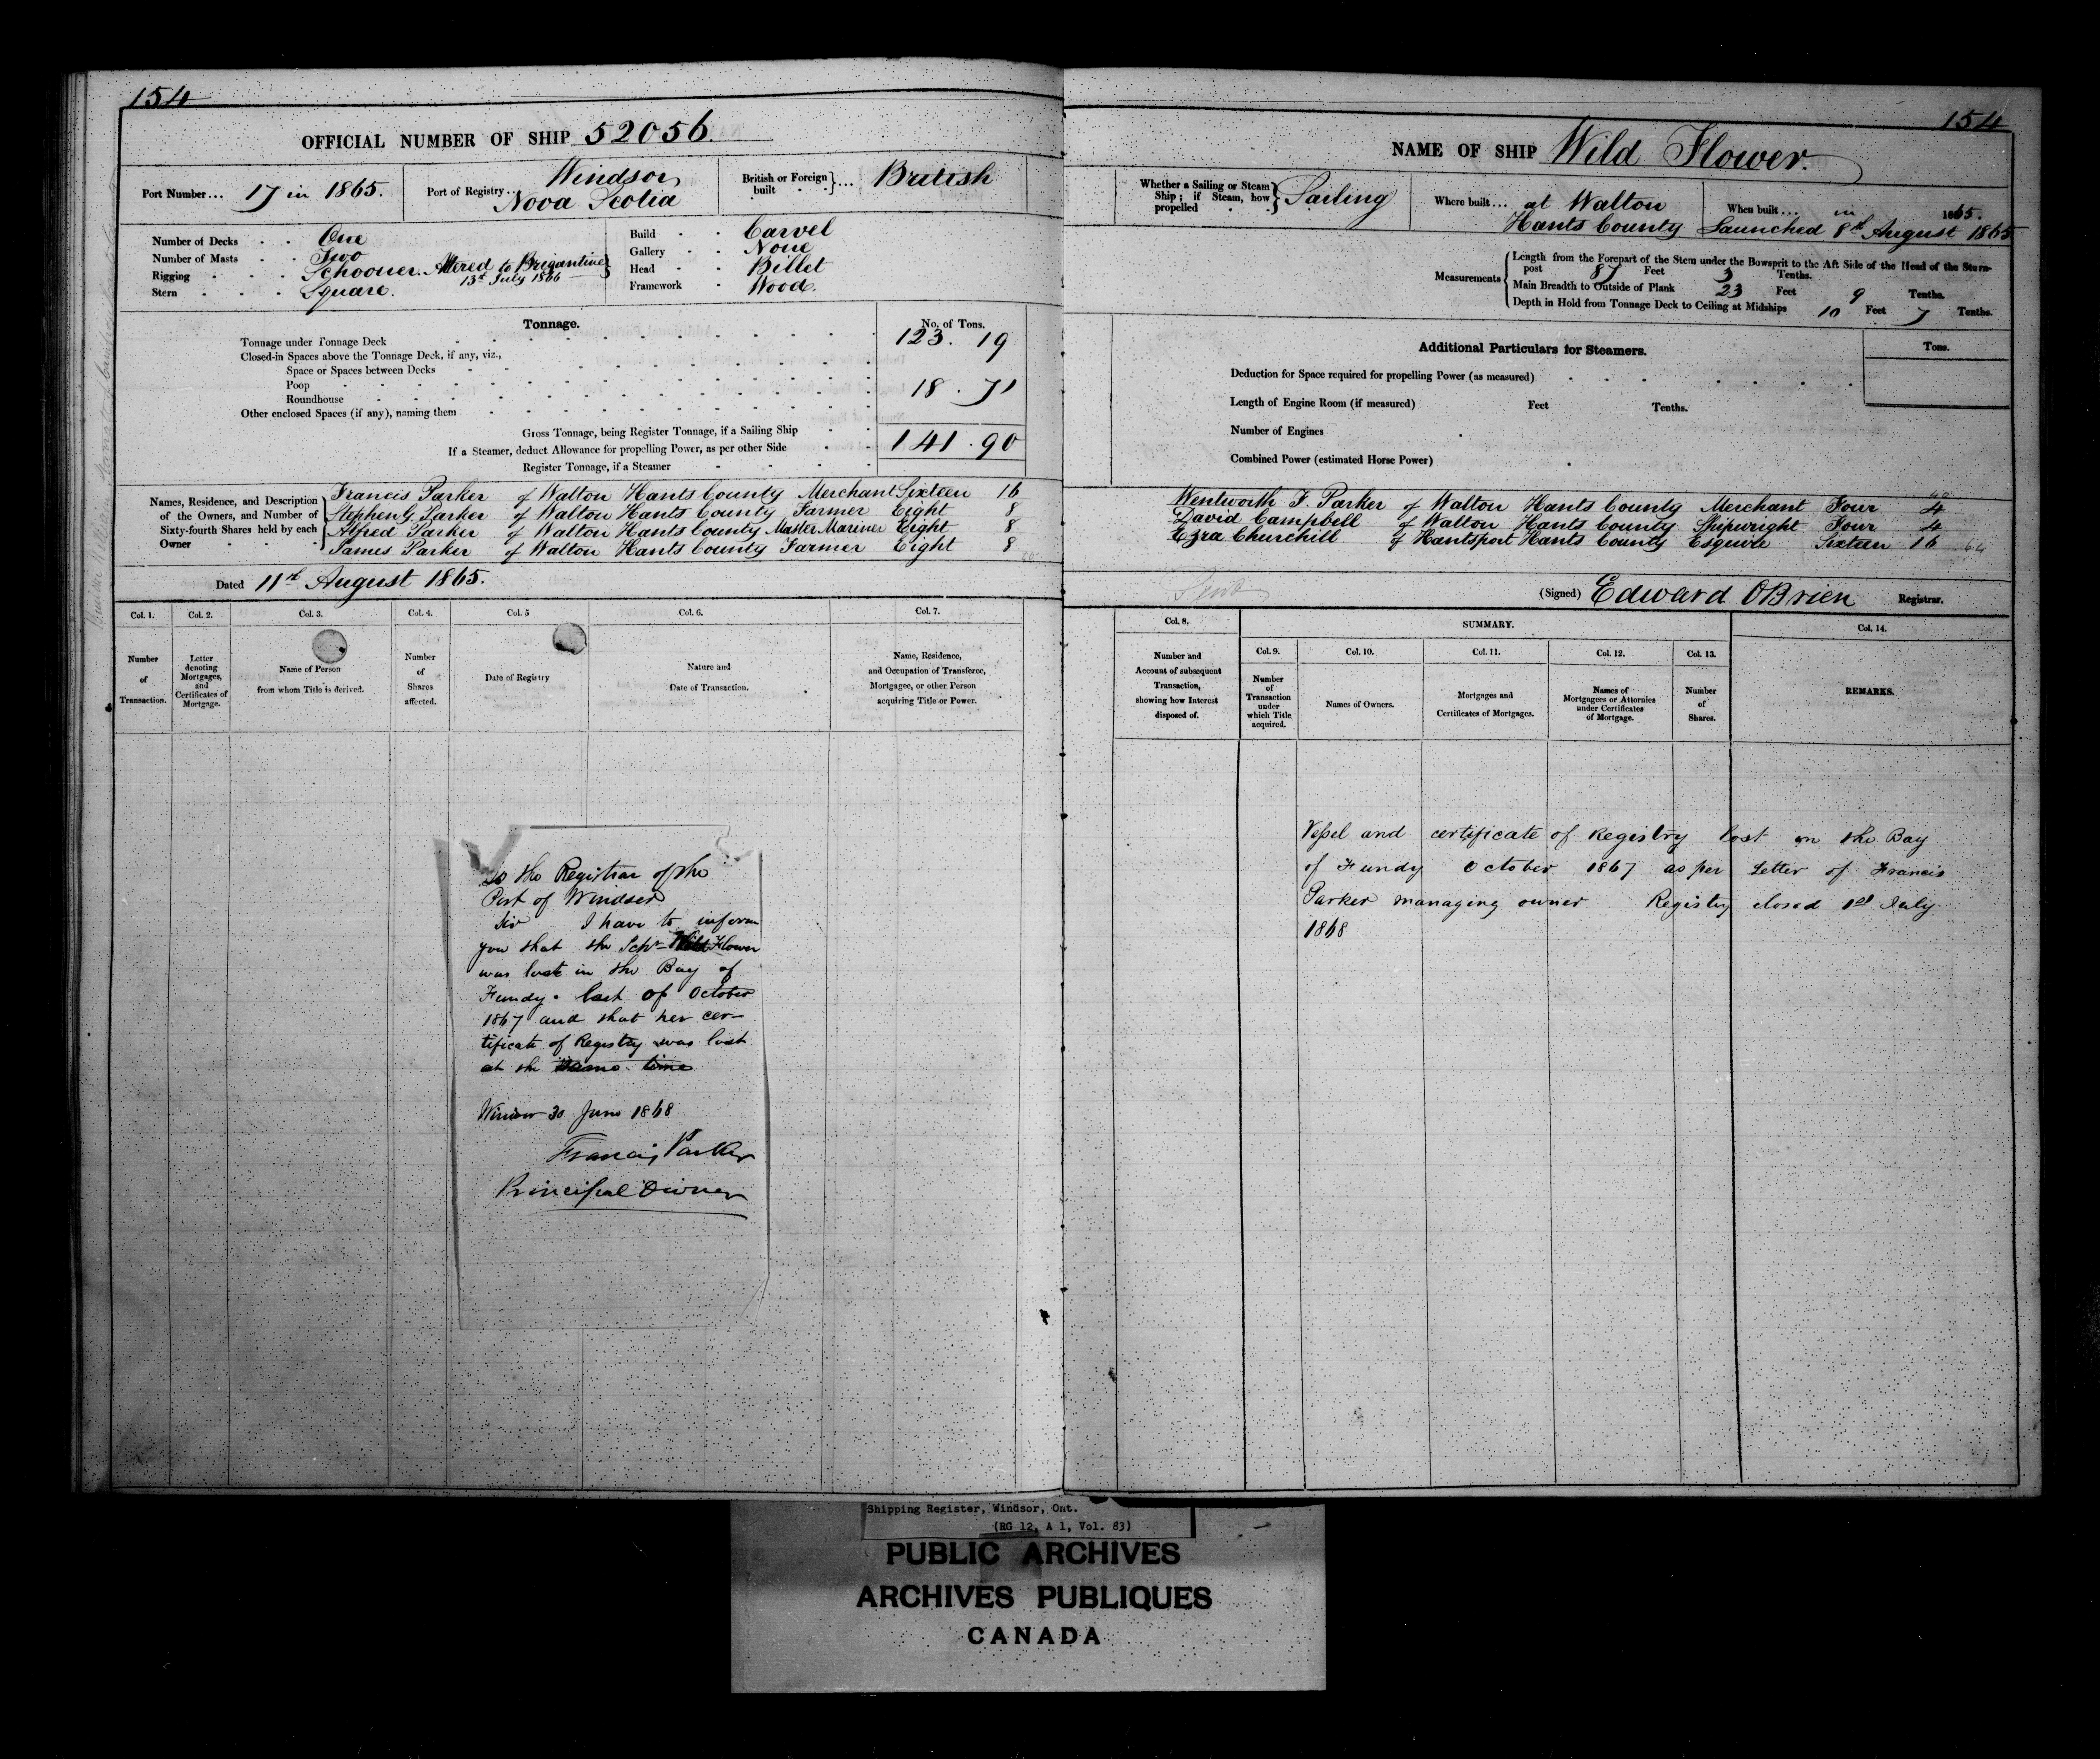 154
OFFICIAL NUMBER OF SHIP 52056.
Port Number... 17 in 1865.
Port of Registry... Windsor
Nova Scotia
British or Foreign built ... British
Number of Decks One
Number of Masts Two
Rigging Schooner. Altered to Brigantine
13th July 1866
Stern Square.
Build Carvel
Gallery None
Head Billet
Framework Wood.
Tonnage.
No. of Tons.
Tonnage under Tonnage Deck 123.19
Closed-in Spaces above the Tonnage Deck, if any, viz.,
Space or Spaces between Decks
Poop 18.71
Roundhouse
Other enclosed Spaces (if any), naming them
Gross Tonnage, being Register Tonnage, if a Sailing Ship 141.90
If a Steamer, deduct Allowance for propelling Power, as per other Side
Register Tonnage, if a Steamer
Names, Residence, and Description of the Owners, and Number of Sixty-fourth Shares held by each Owner
Francis Parker of Walton Hants County Merchant Sixteen 16
Stephen G. Parker of Walton Hants County Farmer Eight 8
Alfred Parker of Walton Hants County Master Mariner Eight 8
James Parker of Walton Hants County Farmer Eight 8
Dated 11th August 1865.
Col. 1. Col. 2. Col. 3. Col. 4. Col. 5 Col. 6. Col. 7.
Number of Transaction.
Letter denoting Mortgages, and Certificates of Mortgage.
Name of Person from whom Title is derived.
Number of Shares affected.
Date of Registry
Nature and Date of Transaction.
Name, Residence, and Occupation of Transferee, Mortgagee, or other Person acquiring Title or Power.
To the Registrar of the
Port of Windsor
Sir I have to inform
you that the Schr Wild Flower
was lost in the Bay of
Fundy. last of October
1867 and that her cer-
tificate of Registry was lost
at the same time
Windsor 30 June 1868
Francis Parker
Principal Owner
154
NAME OF SHIP Wild Flower.
Whether a Sailing or Steam Ship; if Steam, how propelled Sailing
Where built... at Walton
Hants County
When built... in 1865.
Launched 8th August 1865
Measurements
Length from the Forepart of the Stem under the Bowsprit to the Aft Side of the Head of the Stern-
post 87 Feet 3 Tenths.
Main Breadth to Outside of Plank 23 Feet 9 Tenths.
Depth in Hold from Tonnage Deck to Ceiling at Midships 10 Feet 7 Tenths.
Additional Particulars for Steamers.
Tons.
Deduction for Space required for propelling Power (as measured)
Length of Engine Room (if measured) Feet Tenths.
Number of Engines
Combined Power (estimated Horse Power)
40
Wentworth F. Parker of Walton Hants County Merchant Four 4
David Campbell of Walton Hants County Shipwright Four 4
Ezra Churchill of Hantsport Hants County Esquire Sixteen 16 64
(Signed) Edward OBrien Registrar.
Col. 8.
SUMMARY.
Col. 14.
Col. 9. Col. 10. Col. 11. Col. 12. Col. 13.
Number and Account of subsequent Transaction, showing how Interest disposed of.
Number of Transaction under which Title acquired.
Names of Owners.
Mortgages and Certificates of Mortgages.
Names of Mortgagees or Attornies under Certificates of Mortgage.
Number of Shares.
REMARKS.
Vessel and certificate of Registry lost in the Bay
of Fundy October 1867 as per Letter of Francis
Parker managing owner Registry closed 1st July
1868
Shipping Register, Windsor, Ont.
(RG 12, A 1, Vol. 83)
PUBLIC ARCHIVES
ARCHIVES PUBLIQUES
CANADA